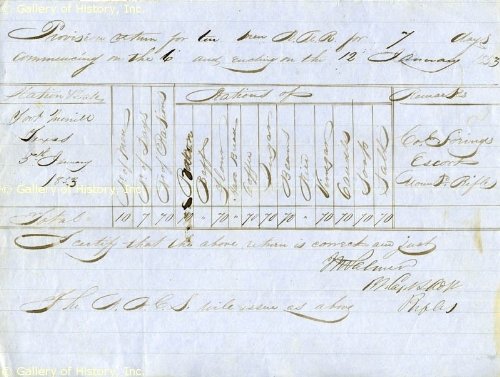 © Gallery of History, Inc.
Provision Return for ten men for 7 days
commencing on the 6 and ending on the 12 January 1853
Station & Date
Rations of
Remarks
Fort Merrill
Texas
5th January
1853
No of men
No of Days
No of Rations
Bacon
Flour
Coffee
Sugar
Beans
Rice
Vinegar
Candles
Soap
Salt
Col Lorings
Escort
Mount Rifles
Total 10 7 70 70 70 70 70 70 70 70 70 70
I certify that the above return is correct and just
Rifles
The A. A. C. S. will issue as above
© Gallery of History, Inc.